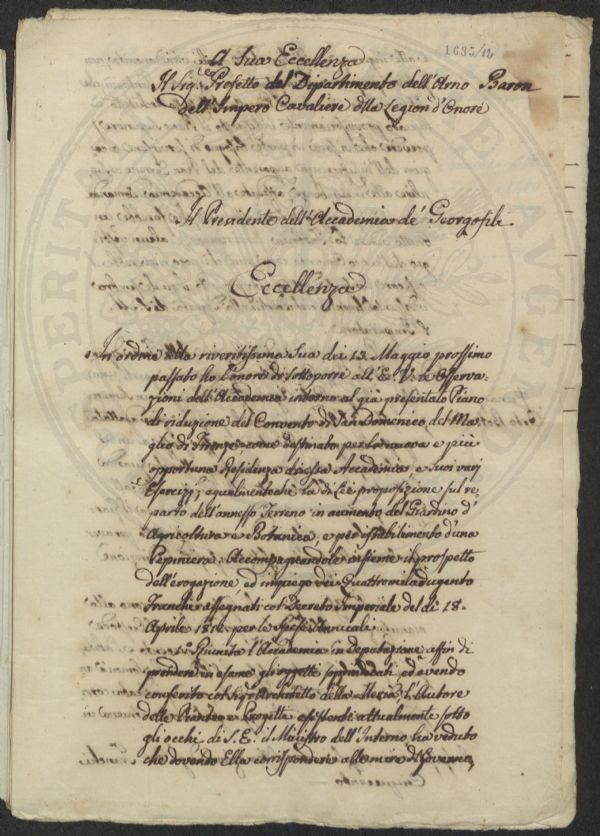 1635/12
A Sua Eccellenza
Il Sig.re Prefetto del Dipartimento dell'Arno Baron
dell'Impero Cavaliere della Legion d'Onore
Il Presidente dell'Accademia de' Georgofili
Eccellenza
In ordine alla riveritissima Sua dei 13. Maggio prossimo
passato ho l'onore di sottoporre all'E. V. le Osserva-
zioni dell'Accademia intorno al già presentato Piano
di riduzione del Convento di San Domenico del Ma-
glio di Firenze, come destinato per la nuova e più
opportuna Residenza di essa Accademia, e Suoi varj
Esercizj; egualmente che la di Lei proposizione sul re-
parto dell'annesso Terreno in aumento del Giardino d'
Agricoltura e Botanica, e per istabilimento d'una
Pepiniera: Accompagnandole insieme il prospetto
dell'erogazione ed impiego dei Quattromiladugento
Franchi assegnati col Decreto Imperiale del dì 18.
Aprile per le Spese Annuali.
1.° Riunita l'Accademia in Deputazione affin di
prendere in esame gli oggetti sopraindicati, ed avendo
conferito col Sig.r Architetto della Mairie l'Autore
delle Piante, e Progetti esistenti attualmente sotto
gli occhi di S. E. il Ministro dell'Interno ha veduto
che dovendo Ella corrispondere alle mire del Governo,